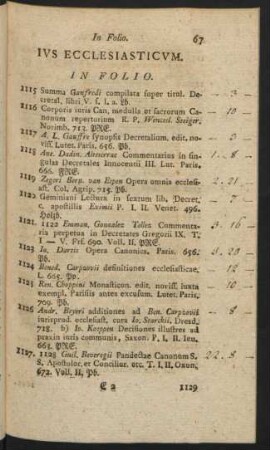 In Folio. 67
IVS ECCLESIASTICVM.
IN FOLIO.
1115 Summa Gaufredi compilata super titul. De- - 3 -
cretal. libri V. s. l. a. Lb.
1116 Corpus iuris Can. medulla et sacrorum Ca- - 10 -
nonum repertorium R. P. Wenzel. Steiger.
Norimb. 713. PRE.
1117 A. L. Gauffre synopsis Decretalium. edit. no-
viss. Lutet. Paris. 656. Pb.
1118 Ant. Dadin. Alteserrae Commentarius in sin- 1 - 8 -
gulas Decretales Innocentii III. Lut. Paris.
666. PRE.
1119 Zegeri Bern. van Espen Opera omnia ecclesi- 2 - 21 -
ast. Col. Agrip. 715. Pb.
1120 Geminiani Lectura in sextum lib. Decret. - 7 -
c. apostillis Eximii P. I. II. Venet. 496.
Holzb.
1121. 1122 Eman. Gonzalez Tellez Commenta-
ria perpetua in Decretales Gregorii IX. T.
I — V. Frf. 690. Voll. II. PRE.
1123 Io. Dartis Opera Canonica. Paris. 656. - 20 -
Pb.
1124 Bened. Carpzovii definitiones ecclesiasticae. - 12 -
L. 665. Pp.
1125 Ren. Choppini Monasticon. edit. noviss. iuxta
exempl. Parisiis antes excusum. Lutet. Paris.
709. Pb.
1126 Andr. Beyeri additiones ad Ben. Carpzovii - 8 -
iurisprud. ecclesiast. cura Io. Sternkii. Dresd.
718. b) Io. Koeppen Decisiones illustres ad
praxin iuris communis, Saxon. P. I. II. Ien.
663. PRE.
1127. 1128 Guil. Beveregii Pandectae Canonum S. 22 - 8 -
S. Apostolor. et Concilior. etc. T. I. II. Oxon.
672. Voll. II. Pb.
E 2 1129